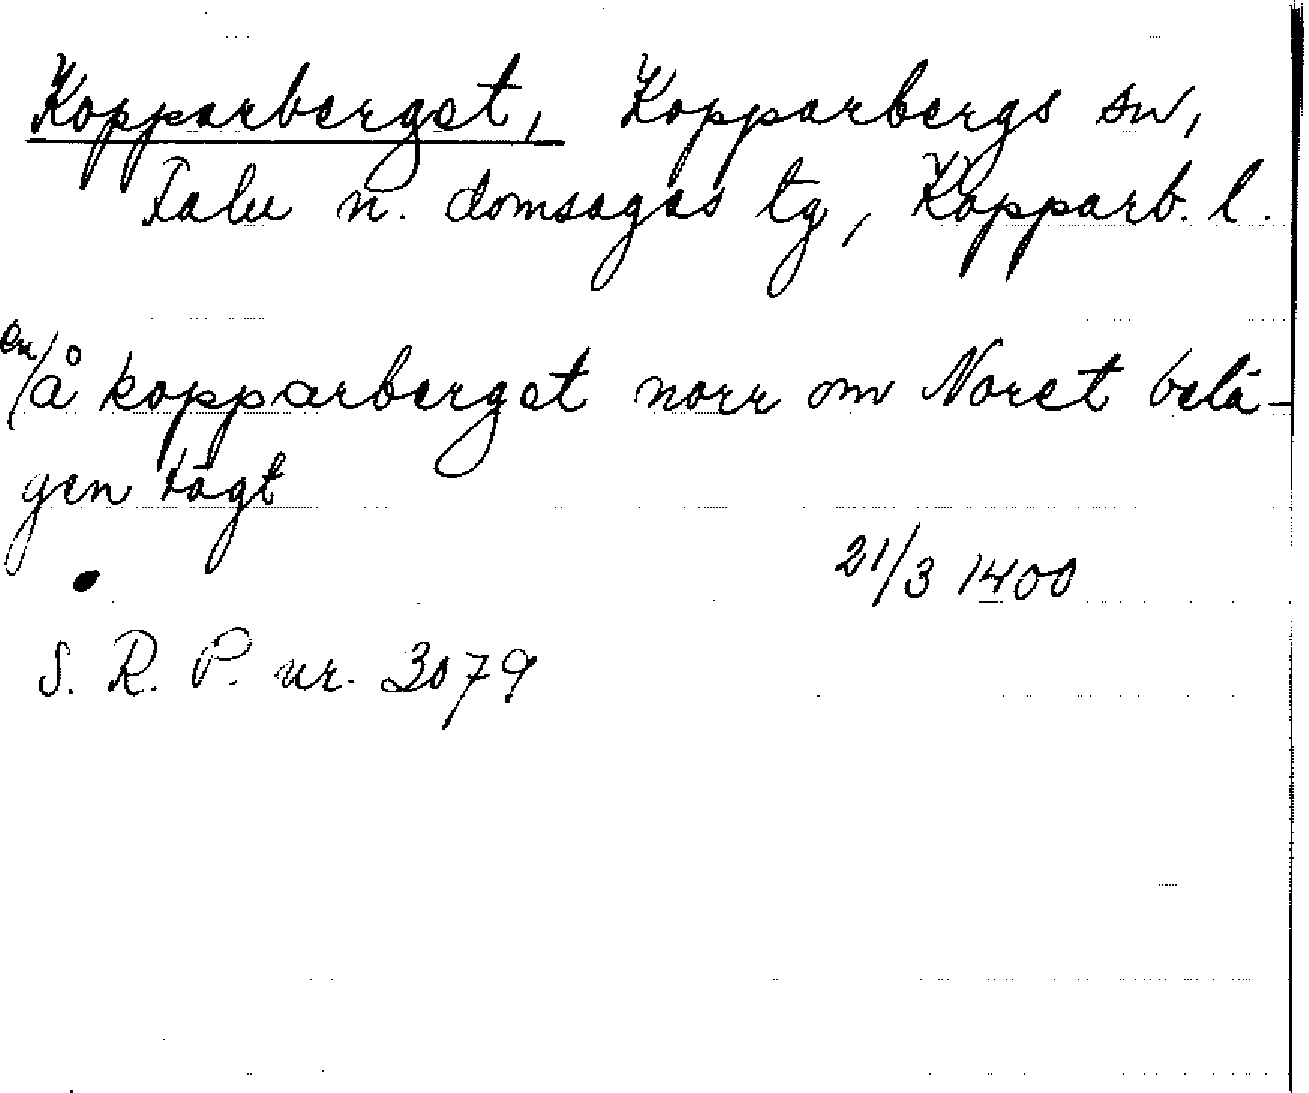 Kopparberget, Kopparbergs sn,
Falu n. domsagas tg, Kopparb. l.
en/å kopparberget norr om Noret belä-
gen tägt
21/3 1400
S. R. P. nr. 3079